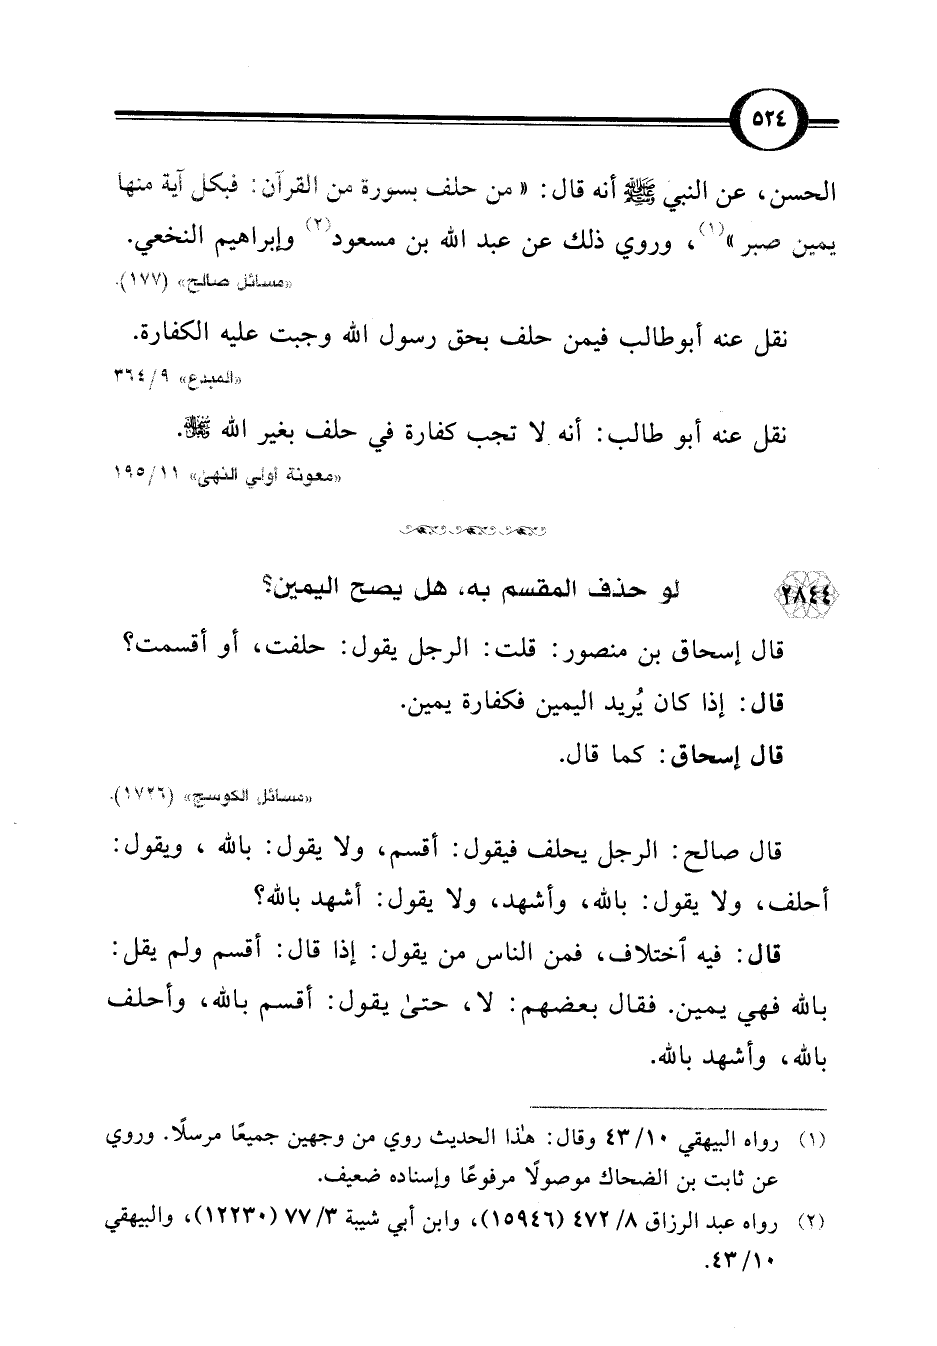 ٥٢٤
الحسن، عن النبي ﷺ أنه قال: « من حلف بسورة من القرآن: فبكل آية منها
يمين صبر »(١)، وروي ذلك عن عبد الله بن مسعود(٢) وإبراهيم النخعي.
«مسائل صالح» (١٧٧).
نقل عنه أبوطالب فيمن حلف بحق رسول الله وجبت عليه الكفارة.
«المبدع» ٩/ ٣٦٤
نقل عنه أبو طالب: أنه لا تجب كفارة في حلف بغير الله ﷺ.
«معونة أولي النهى» ١١/ ١٩٥
٢٨٤٤ لو حذف المقسم به، هل يصح اليمين؟
قال إسحاق بن منصور: قلت: الرجل يقول: حلفت، أو أقسمت؟
قال: إذا كان يُريد اليمين فكفارة يمين.
قال إسحاق: كما قال.
«مسائل الكوسج» (١٧٢٦).
قال صالح: الرجل يحلف فيقول: أقسم، ولا يقول: بالله ، ويقول:
أحلف، ولا يقول: بالله، وأشهد، ولا يقول: أشهد بالله؟
قال: فيه ٱختلاف، فمن الناس من يقول: إذا قال: أقسم ولم يقل:
بالله فهي يمين. فقال بعضهم: لا، حتىٰ يقول: أقسم بالله، وأحلف
بالله، وأشهد بالله.
(١) رواه البيهقي ١٠/ ٤٣ وقال: هٰذا الحديث روي من وجهين جميعًا مرسلًا. وروي
عن ثابت بن الضحاك موصولًا مرفوعًا وإسناده ضعيف.
(٢) رواه عبد الرزاق ٨/ ٤٧٢ (١٥٩٤٦)، وابن أبي شيبة ٣/ ٧٧ (١٢٢٣٠)، والبيهقي
١٠/ ٤٣.